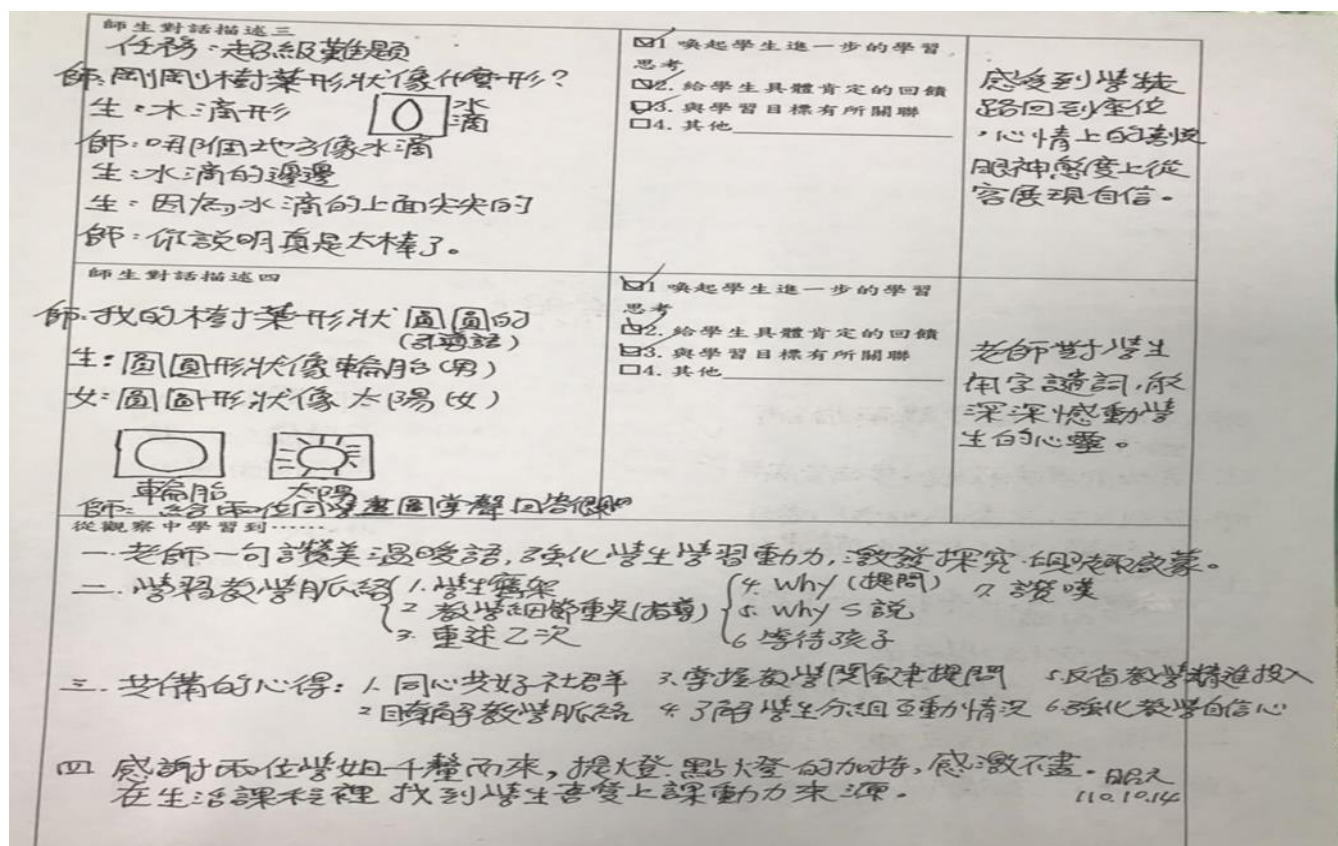 師生對話描述三
任務:超級難題
師:剛剛樹葉形狀像什麼形?
生:水滴形
水滴
師:哪個地方像水滴
生:水滴的邊邊
生:因為水滴的上面尖尖的
師:你說明真是太棒了。
☑1 喚起學生進一步的學習思考
☑2. 給學生具體肯定的回饋
☑3. 與學習目標有所關聯
□4. 其他
感受到學生走
路回到座位
,心情上的喜悅
眼神態度上從
容展現自信。
師生對話描述四
師:我的樹葉形狀圓圓的
(引導語)
生:圓圓形狀像輪胎(男)
女:圓圓形狀像太陽(女)
輪胎 太陽
師:給兩位同學畫圖掌聲回答很
☑1 喚起學生進一步的學習
思考
☑2. 給學生具體肯定的回饋
☑3. 與學習目標有所關聯
□4. 其他
老師對學生
用字遣詞,能
深深憾動學
生的心靈。
從觀察中學習到……
一. 老師一句讚美溫暖語,強化學生學習動力,激發探究 啟蒙。
二. 學習教學脈絡 1. 學生鷹架 4. Why (提問) 7. 讚嘆
2 教學細節重尖(指導) 5. Why 5 說
3. 重述乙次 6 等待孩子
三. 共備的心得: 1. 同心共好社群 3. 掌握教學關鍵提問 5. 反省教學精進投入
2 瞭解教學脈絡 4. 了解學生分組互動情況 6 強化教學自信心
四 感謝兩位學姐千里而來,提燈.點燈的加持,感激不盡。
在生活課程裡 找到學生喜愛上課動力來源。
110.10.14